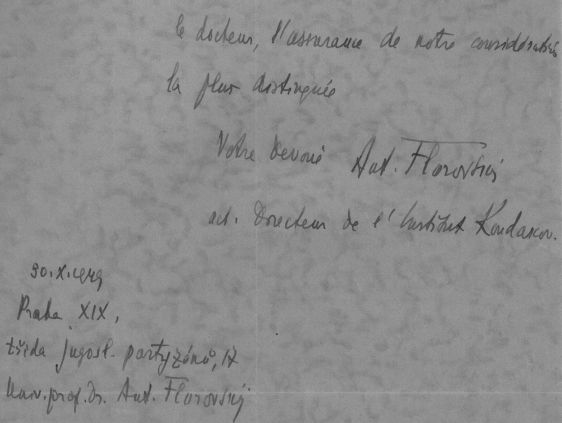 le docteur, l'assurance de notre considération
la plus distinguée
Votre dévoué Ant. Florovskij
act. Directeur de l'Institut Kondakov.
30.X.1949
Praha XIX,
třída jugosl. partyzánů, 17
Univ. prof. Dr. Ant. Florovskij